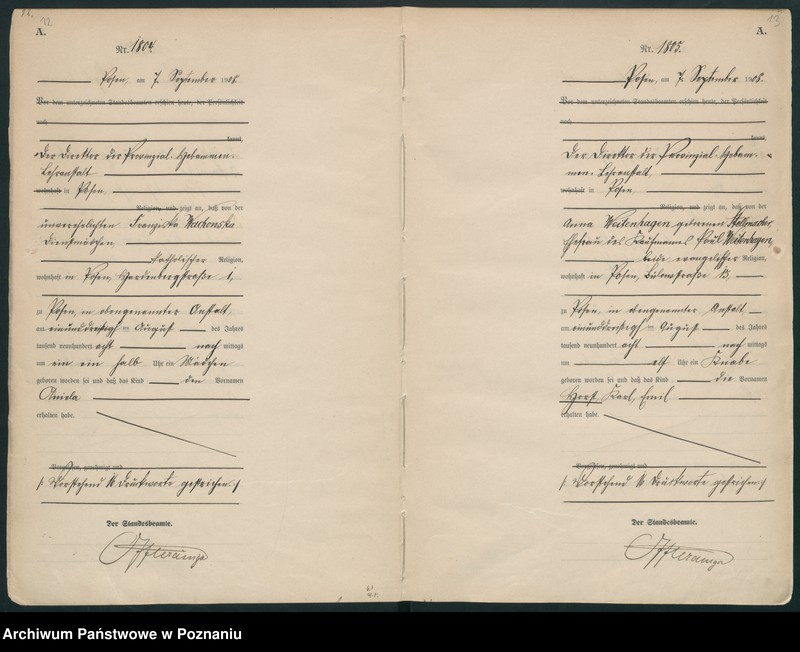 12
A.
Nr. 1804.
Posen, am 7. September 1908.
Vor dem unterzeichneten Standesbeamten erschien heute, der Persönlichkeit
nach
kannt,
Der Direktor der Provinzial-Hebammen-
Lehranstalt
wohnhaft in Posen
Religion, und zeigt an, daß von der
unverehelichten Franziska
Dienstmädchen
katholischer Religion,
wohnhaft in Posen, Hardenbergstraße 1,
zu Posen, in obengenannter Anstalt
am einunddreißigsten August des Jahres
tausend neunhundert acht nach mittags
um ein ein halb Uhr ein Mädchen
geboren worden sei und daß das Kind den Vornamen
Aniela
erhalten habe.
Vorgelesen, genehmigt und
/: Vorstehend 16 Druckworte gestrichen. :/
Der Standesbeamte.
13
A.
Nr. 1805.
Posen, am 7. September 1908.
Vor dem unterzeichneten Standesbeamten erschien heute, der Persönlichkeit
nach
kannt,
Der Direktor der Provinzial-Hebam-
men-Lehranstalt
wohnhaft in Posen
Religion, und zeigt an, daß von der
Anna Weitenhagen geborenen Stellmacher,
Ehefrau des Kaufmanns Paul Weitenhagen,
beide evangelischer Religion,
wohnhaft in Posen, Bülowstraße 13
zu Posen, in obengenannter Anstalt
am einunddreißigsten August des Jahres
tausend neunhundert acht nach mittags
um elf Uhr ein Knabe
geboren worden sei und daß das Kind die Vornamen
Horst Karl Emil
erhalten habe.
Vorgelesen, genehmigt und
/: Vorstehend 16 Druckworte gestrichen. :/
Der Standesbeamte.
Archiwum Państwowe w Poznaniu